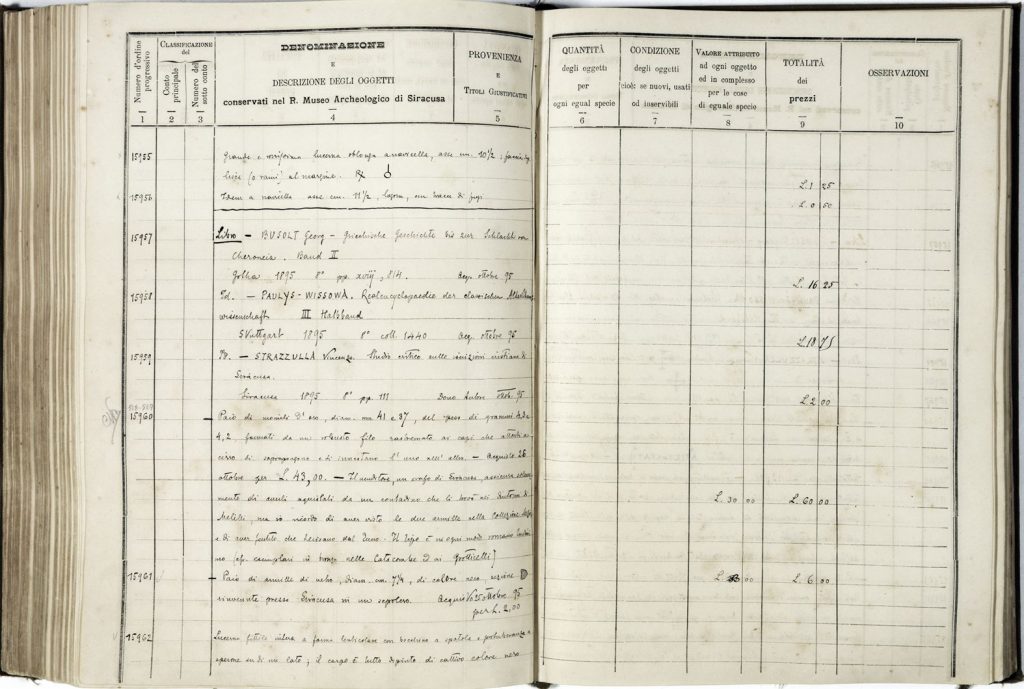 Numero d'ordine progressivo
CLASSIFICAZIONE
del
Conto principale
Numero del sotto conto
DENOMINAZIONE
E
DESCRIZIONE DEGLI OGGETTI
conservati nel R. Museo Archeologico di Siracusa
PROVENIENZA
E
TITOLI GIUSTIFICATIVI
1 2 3 4 5
15955 Grande lucerna oblunga a navicella, asse cm. 10 1/2;
al margine.
15956 Idem a navicella asse cm. 11 1/2,
15957 Libro - BUSOLT Georg - Griechische Geschichte bis zur Schlacht von
Cheroneia. Band II
Gotha 1895 8° pp. xviij, 814. Acq. ottobre 95
15958 Id. - PAULYS-WISSOWA. Realencyclopaedie der classischen
wissenschaft III Halbband
Stuttgart 1895 8° coll. 1440 Acq. ottobre 95
15959 Id. - STRAZZULLA Vincenzo. Studio critico sulle iscrizioni cristiane di
Siracusa.
Siracusa 1895 8° pp. 111 Dono Autore Ottob. 95
15960 Paio di d'oro, diam. mm 41 e 37, del peso di grammi
4,2, formati da un robusto filo rastremato ai capi che
si sovrappongono e si innestano l'uno nell'altro. - Acquisto 26
ottobre per L. 43,00. - Il venditore, un orafo di Siracusa, assicura
di averli acquistati da un contadino che li trovò
ma io ricordo di aver visto le due armille nella Collezione
e di aver sentito che
esemplari in bronzo nelle Catacombe e ai Grotticelli]
15961 - Paio di armille di vetro, diam. cm. 7 1/4, di colore nero, sezione D
rinvenute presso Siracusa in un sepolcro. Acquisto 25 ottobre 95
per L. 2,00
15962 Lucerna fittile intera a forma lenticolare con beccuccio a spatola e protuberanza a
sperone su di un lato; il corpo è tutto dipinto di cattivo colore nero
QUANTITÀ
degli oggetti
per
ogni egual specie
CONDIZIONE
degli oggetti
cioè: se nuovi, usati
od inservibili
VALORE ATTRIBUITO
ad ogni oggetto
ed in complesso
per le cose
di eguale specie
TOTALITÀ
dei
prezzi
OSSERVAZIONI
6 7 8 9 10
L. 1 25
L. 0 50
L. 16 25
L. 18 75
L. 2 00
L. 30 00 L. 60 00
L. 3 00 L. 6 00